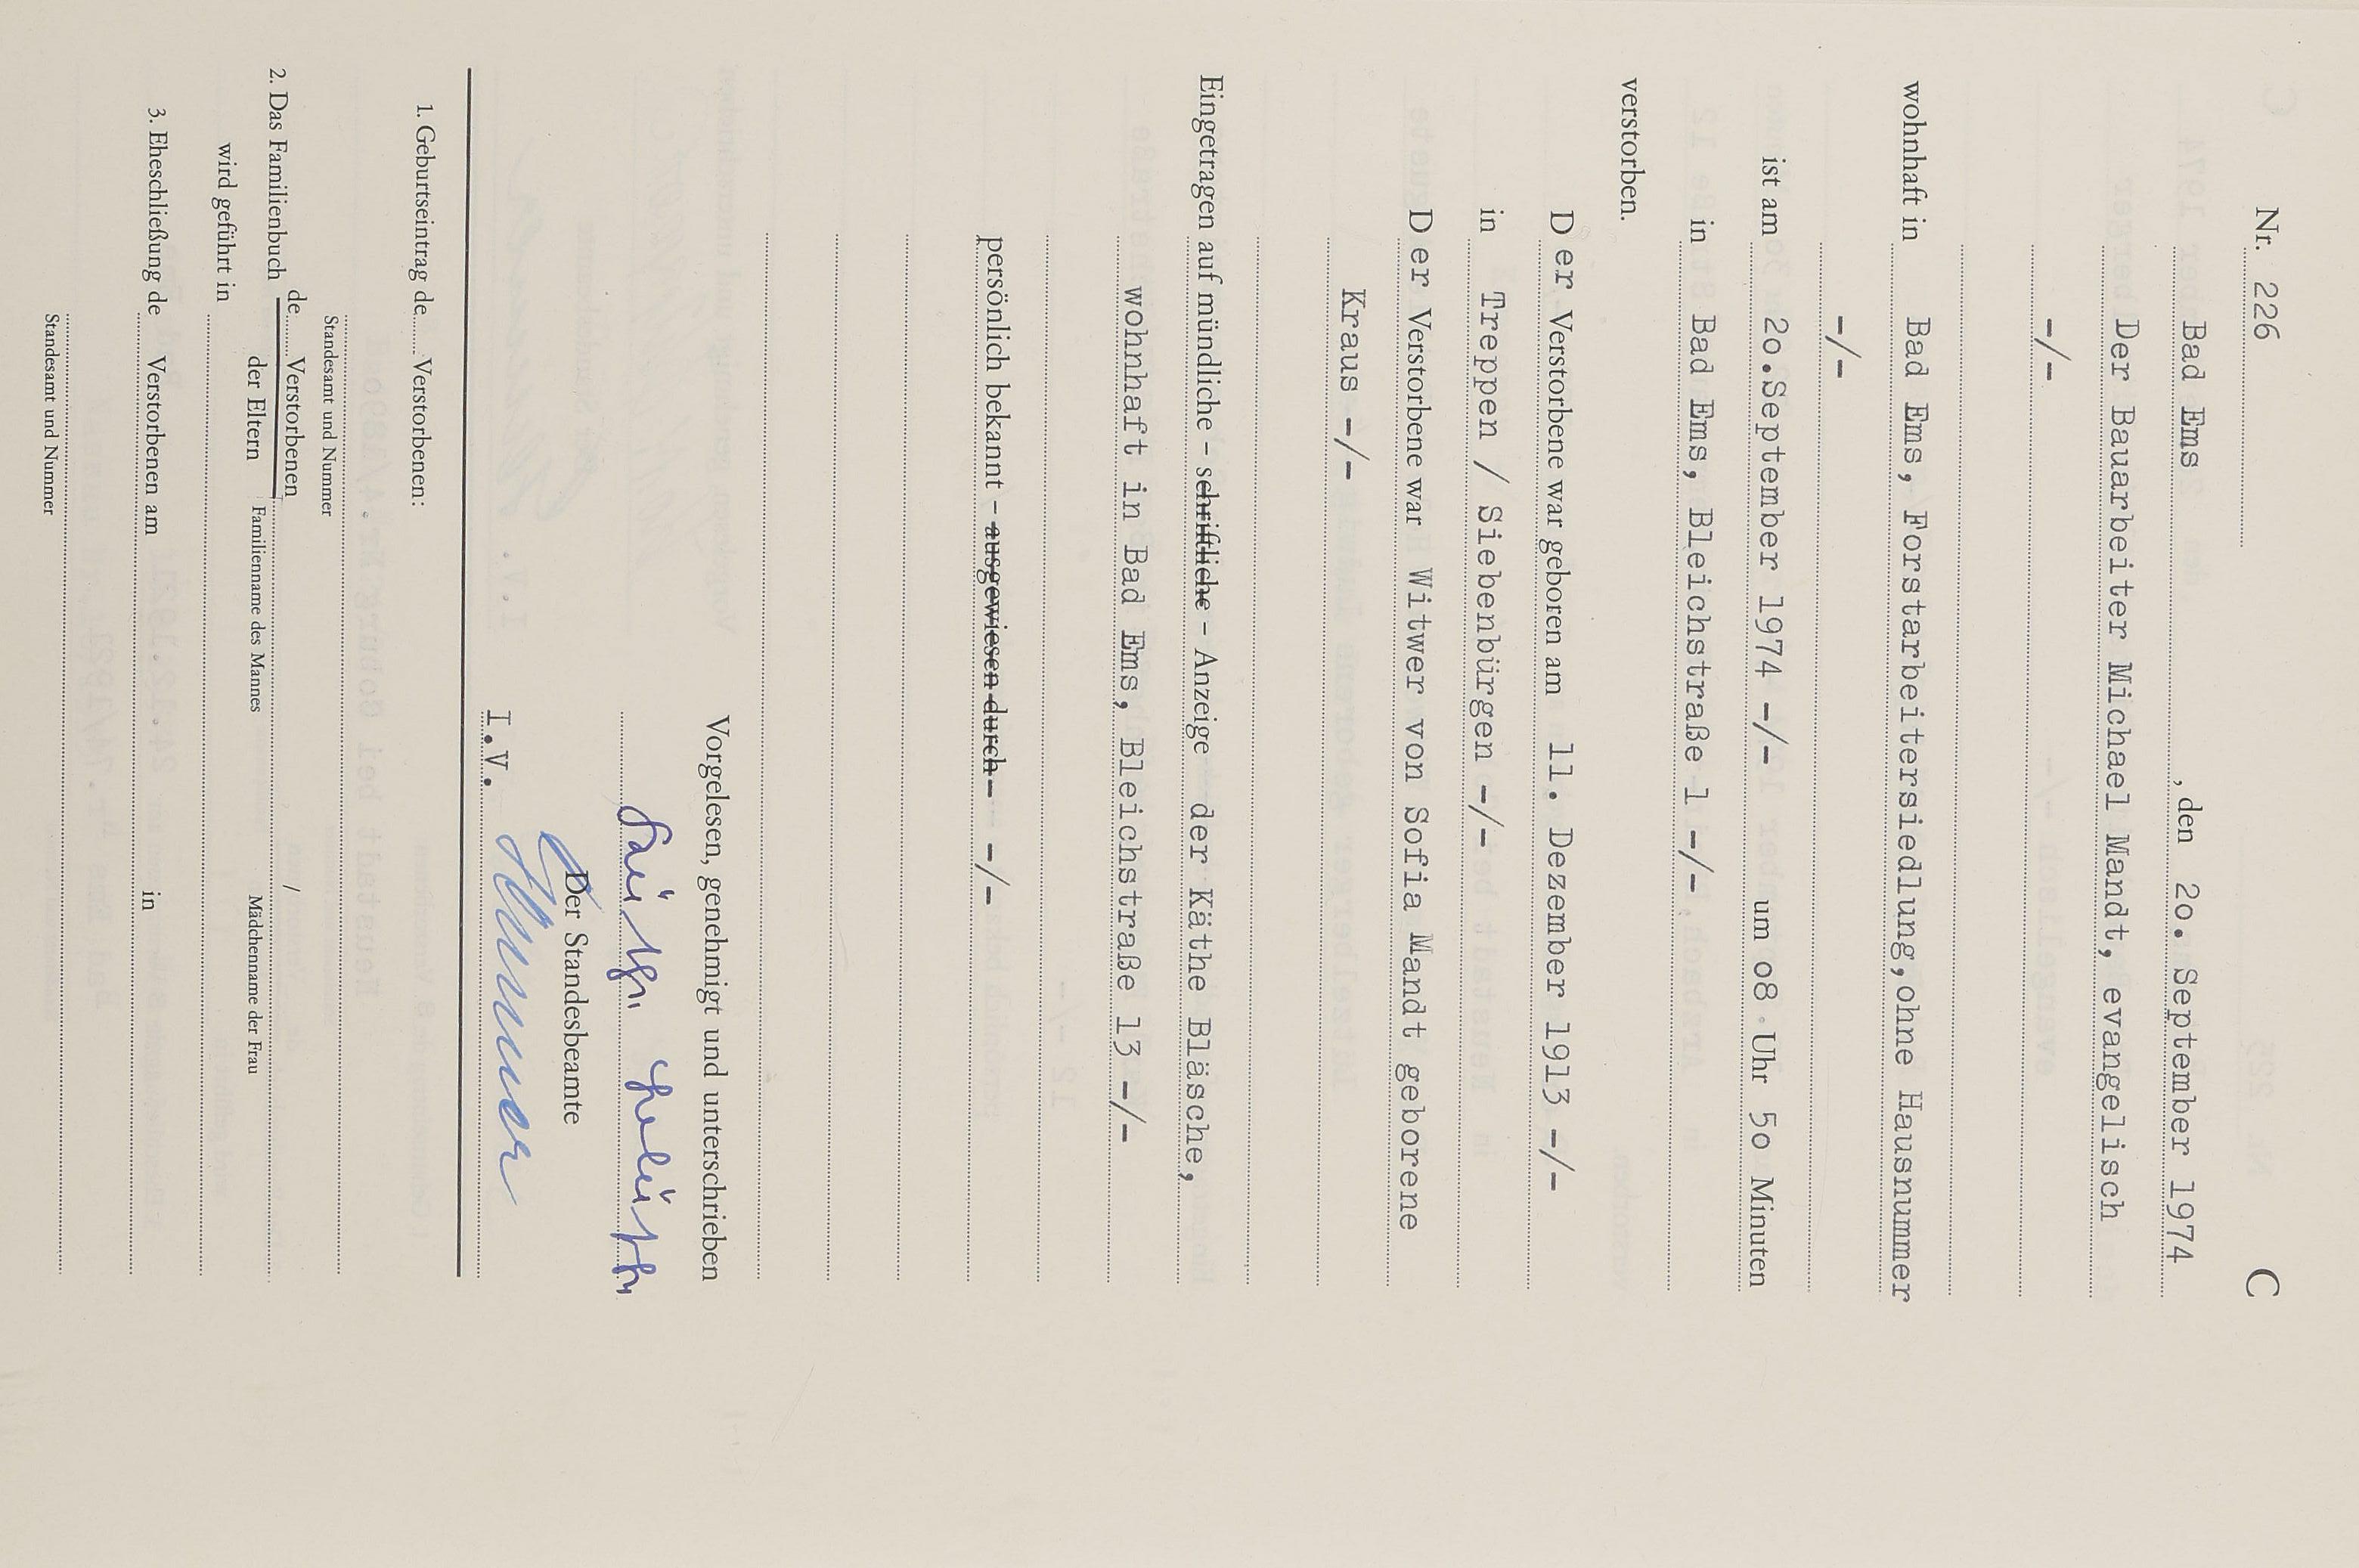 Nr. 226 C
Bad Ems , den 2o. September 1974
Der Bauarbeiter Michael Mandt, evangelisch
-/-
wohnhaft in Bad Ems, Forstarbeitersiedlung,ohne Hausnummer
-/-
ist am 2o.September 1974 -/- um o8 Uhr 5o Minuten
in Bad Ems, Bleichstraße 1 -/-
verstorben.
Der Verstorbene war geboren am 11. Dezember 1913 -/-
in Treppen / Siebenbürgen -/-
Der Verstorbene war Witwer von Sofia Mandt geborene
Kraus -/-
Eingetragen auf mündliche – schriftliche – Anzeige der Käthe Bläsche,
wohnhaft in Bad Ems, Bleichstraße 13 -/-
persönlich bekannt – ausgewiesen durch – -/-
Vorgelesen, genehmigt und unterschrieben
Der Standesbeamte
I.V.
1. Geburtseintrag de Verstorbenen:
Standesamt und Nummer
2. Das Familienbuch de Verstorbenen /
der Eltern Familienname des Mannes Mädchenname der Frau
wird geführt in
3. Eheschließung de Verstorbenen am in
Standesamt und Nummer